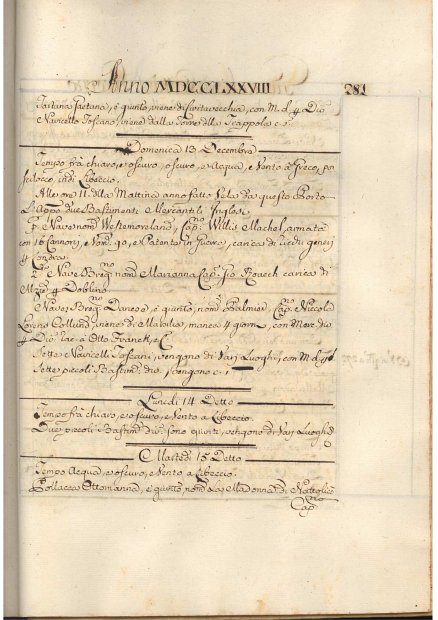 Anno MDCCLXXVIII 281
Tartana Gaetana, è giunto, viene di Civitavecchia, con M. d. p Div.
Navicello Toscano, viene dalla Torre della Trappola c. s.
Domenica 13 Decembre
Tempo frà chiaro, e oscuro, oscuro, e Acqua, e Vento à Greco, poi
Scirocco, indi Libeccio.
Alle ore 11. della Mattina anno fatto Vela da questo Porto
L'App.o due Bastimenti e Mercantili Inglesi
P.a Nave nom. Westmoreland, Cap. Willis Machel, armata
con 16 Cannoni, Nom. 90, e Patente in Guerra, carica di generi
p Londra.
2.a Nave Brig.no nom. Marianna Cap. Roaech carica di
p Doblino.
Nave Brig.no Danese è giunto, nom. Palmier, Cap.no Niccolò
Lorens Collund, viene di manca giorni, con Mere. div.
p Div. rac. à Otto Franck, e C.
Sette Navicelli Toscani, vengono di Varj Luoghi, con M. d. p Div.
Sette piccoli Bastim. div. vengono c. s.
Lunedì 14 Detto
Tempo frà chiaro, e oscuro, e Vento à Libeccio.
Due piccoli Bastim. div. sono giunti, vengono di Varj Luoghi
Martedì 15 Detto
Tempo Acqua, e oscuro, e Vento à Libeccio.
Polacca Ottomanna, è giunto, nom. La Madonna di
Cap.no